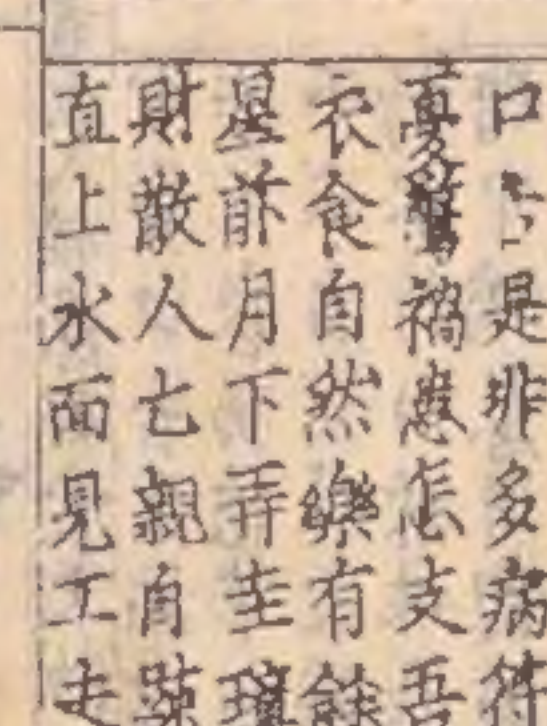 口是非多病符
憂禍患怎支吾
衣食自然樂有餘
星前月下弄圭
財散人亡親自疎
直上水面見工